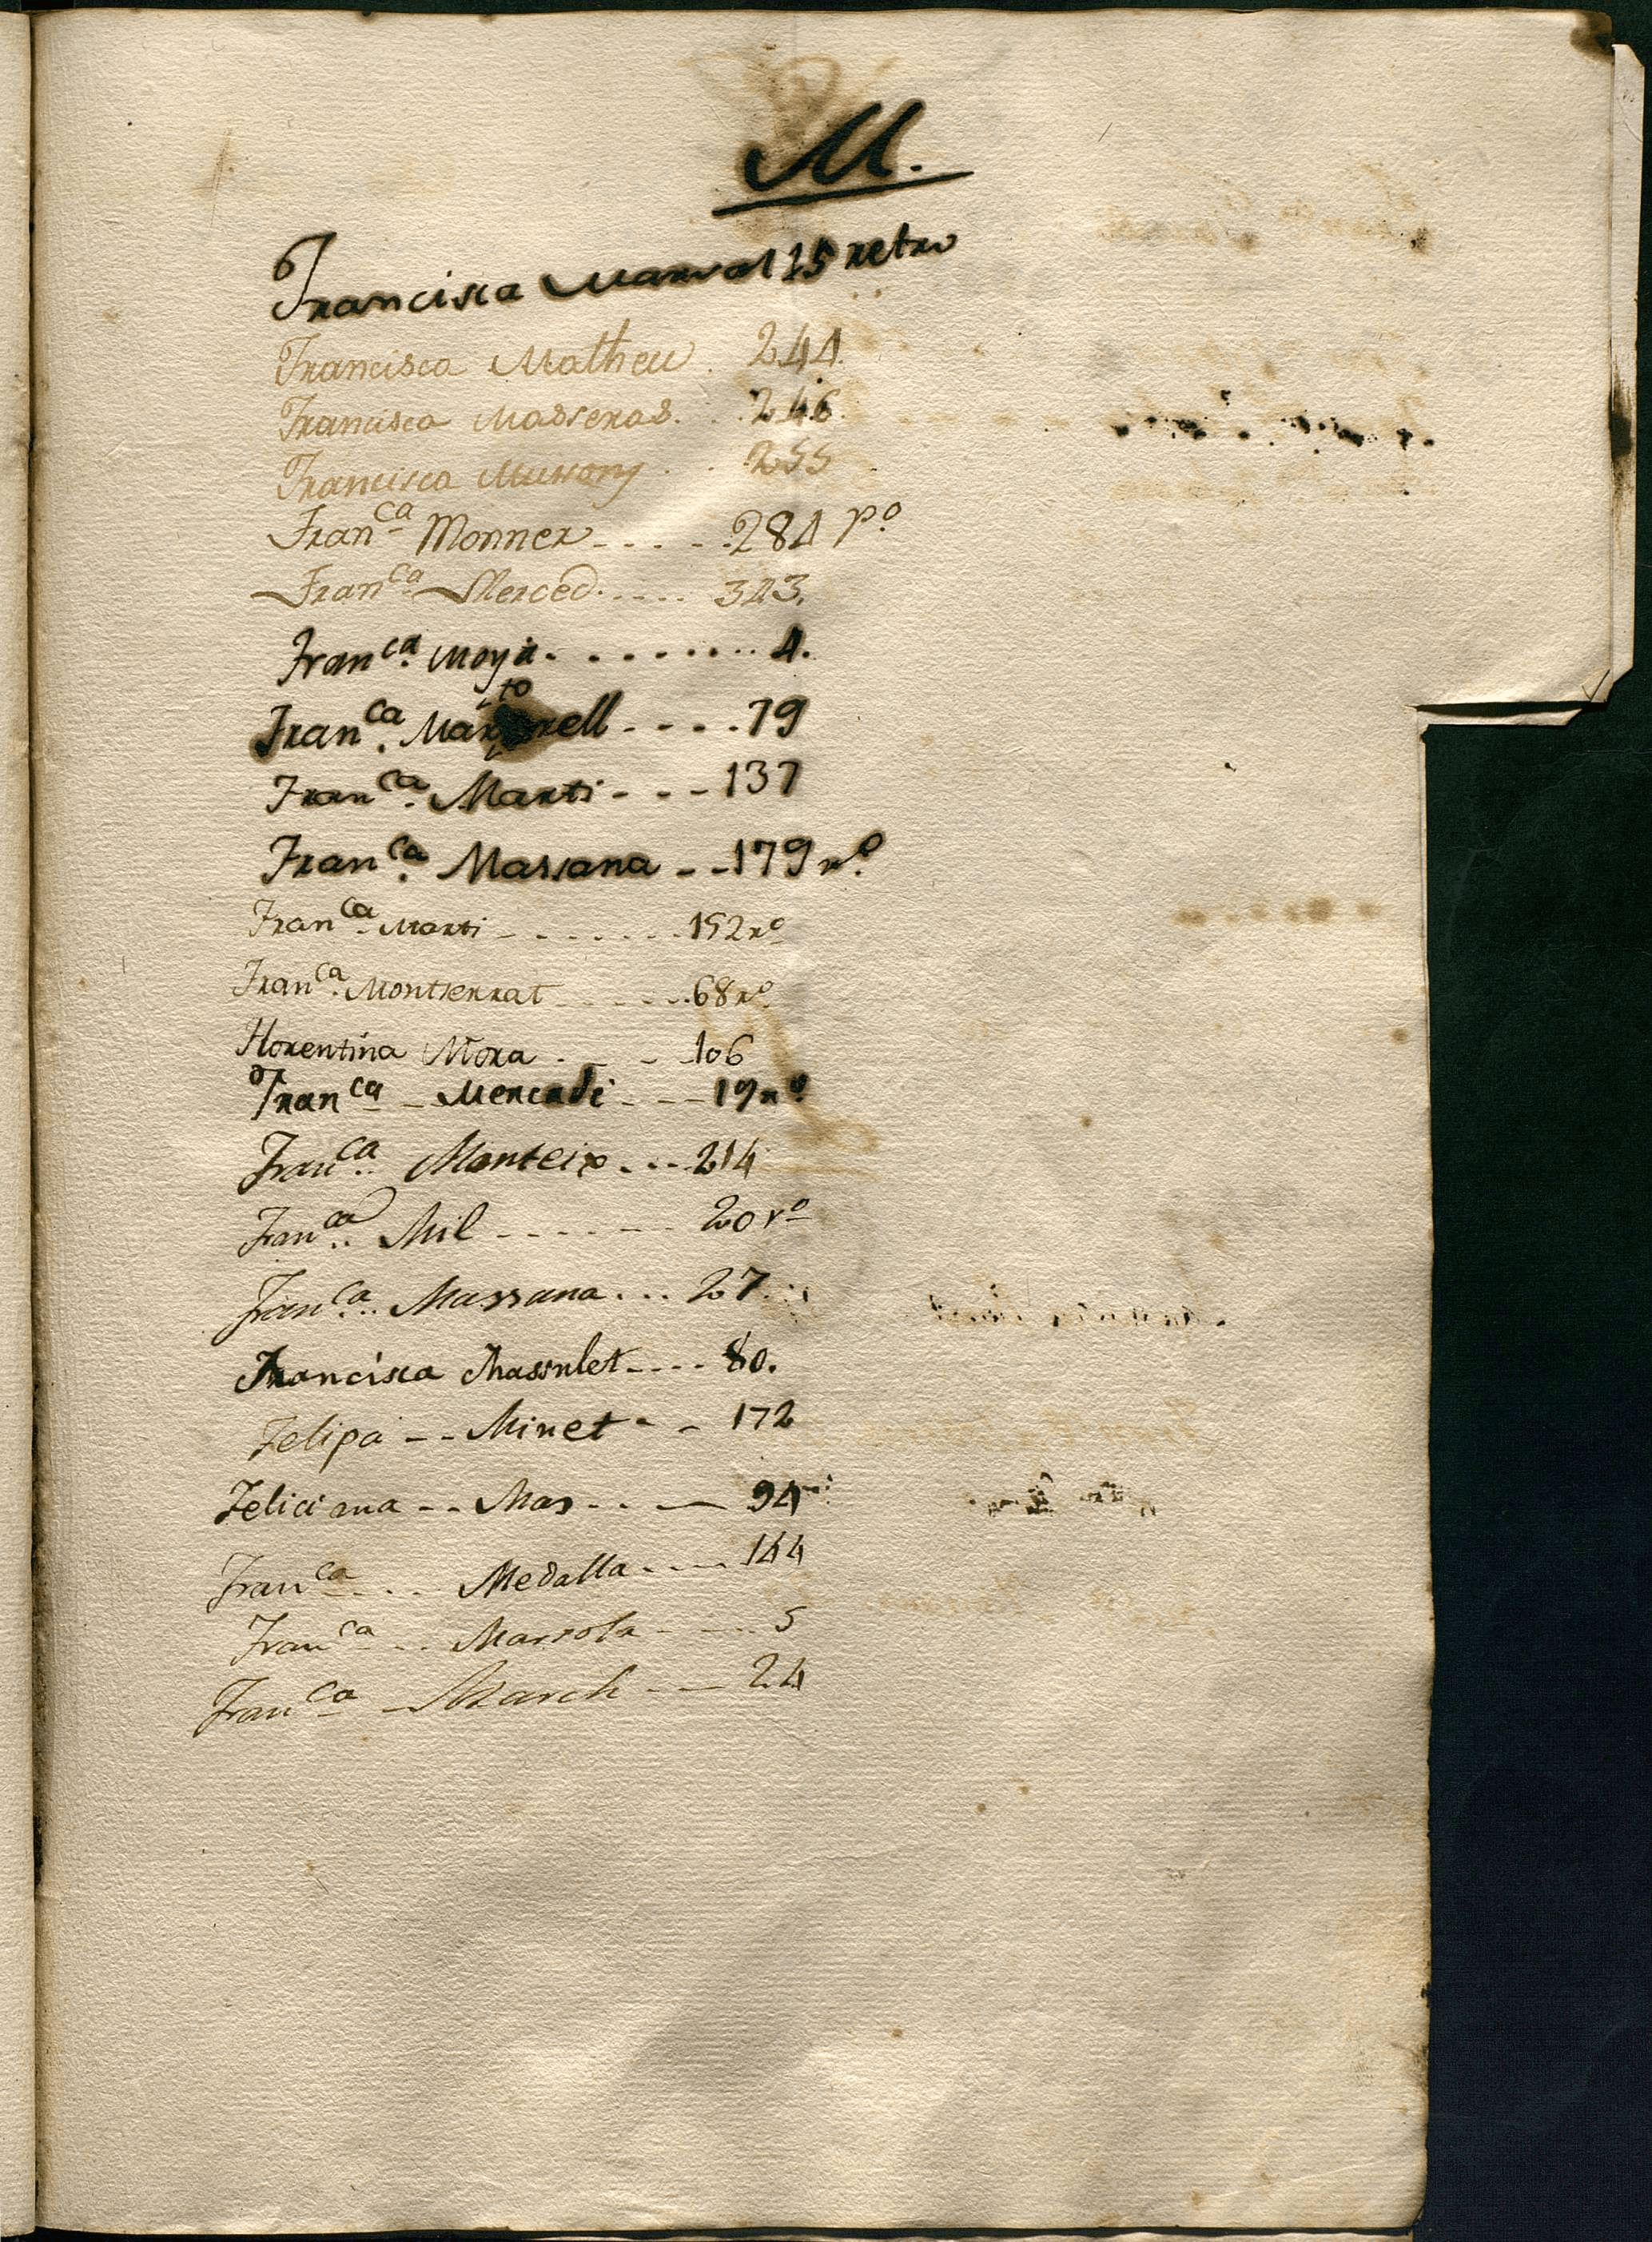 M.
Francisca Marval 15 retro
Francisca Matheu . 244.
Francisca Masseras. . 246.
Francisca Mussons . . 255
Fran.ca Monner - - - - - 284 p.o
Fran.ca Merced. - - - - 343.
Fran.ca Moya. . . . . . . . . 4.
Fran.ca Martorell - - - . 79
Fran.ca Marti - - - 137
Fran.ca Massana - - 179 r.o
Fran.ca Marti - - - - - - - 152 ro
Fran.ca Montserrat - - - - - 68 ro
Florentina Mora - - - 106
Fran.ca - Mercadé - - - 19 ro
Fran.ca Monteix . . . 214
Fran.ca Mil - - - - - - 20 vo
Fran.ca Massana . . . 27.
Francisca Massulet - - - - 80.
Felipa - - Minet - - 172
Feliciana - - Mas - . - 94
Fran.ca . . . Medalla - - - - 144
Fran.ca - . . Marrola - - - - 5
Fran.ca - March - - - 24